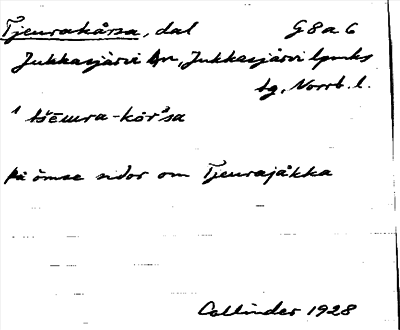 Tjeurakårsa, dal G8a6
Jukkasjärvi sn, Jukkasjärvi lpmks
tg, Norrb. l.
på ömse sidor om Tjeurajåkka
Collinder 1928